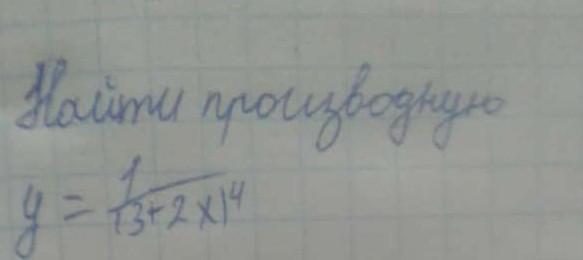 Найти производную
y = 1/(3+2x)⁴